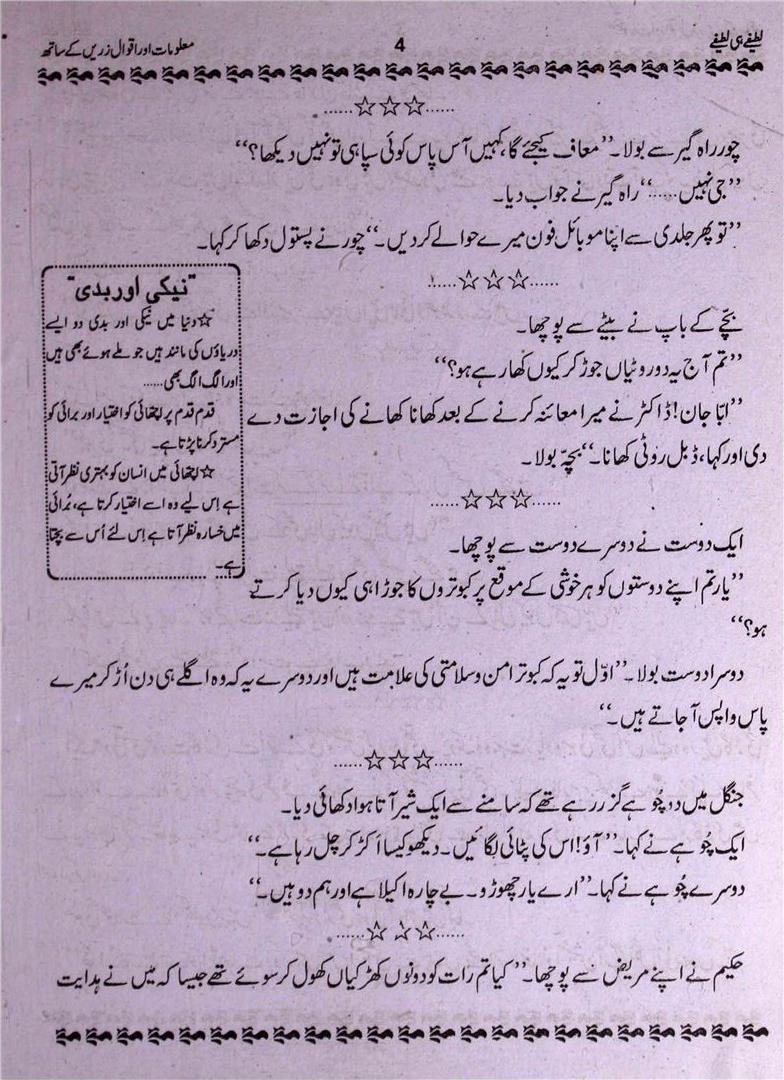 لطیفے ہی لطیفے
4
معلومات اور اقوال زریں کے ساتھ
......☆☆☆......
چور راہ گیر سے بولا۔ ”معاف کیجئے گا، کہیں آس پاس کوئی سپاہی تو نہیں دیکھا؟“
”جی نہیں......“ راہ گیر نے جواب دیا۔
”تو پھر جلدی سے اپنا موبائل فون میرے حوالے کر دیں۔“ چور نے پستول دکھا کر کہا۔
......☆☆☆......
بچّے کے باپ نے بیٹے سے پوچھا۔
”تم آج یہ دو روٹیاں جوڑ کر کیوں کھا رہے ہو؟“
”ابّا جان! ڈاکٹر نے میرا معائنہ کرنے کے بعد کھانا کھانے کی اجازت دے
دی اور کہا، ڈبل روٹی کھانا۔“ بچّہ بولا۔
......☆☆☆......
”نیکی اور بدی“
☆دنیا میں نیکی اور بدی دو ایسے
دریاؤں کی مانند ہیں جو ملے ہوئے بھی ہیں
اور الگ الگ بھی......
قدم قدم پر اچھّائی کو اختیار اور برائی کو
مسترد کرنا پڑتا ہے۔
☆اچھّائی میں انسان کو بہتری نظر آتی
ہے اِس لیے وہ اسے اختیار کرتا ہے، بُرائی
میں خسارہ نظر آتا ہے اِس لئے اُس سے بچتا
ہے۔
ایک دوست نے دوسرے دوست سے پوچھا۔
”یار تم اپنے دوستوں کو ہر خوشی کے موقع پر کبوتروں کا جوڑا ہی کیوں دیا کرتے
ہو؟“
دوسرا دوست بولا۔ ”اوّل تو یہ کہ کبوتر امن و سلامتی کی علامت ہیں اور دوسرے یہ کہ وہ اگلے ہی دن اُڑ کر میرے
پاس واپس آ جاتے ہیں۔“
......☆☆☆......
جنگل میں دو چُوہے گزر رہے تھے کہ سامنے سے ایک شیر آتا ہوا دکھائی دیا۔
ایک چُوہے نے کہا۔ ”آؤ! اس کی پٹائی لگائیں۔ دیکھو کیسا اَکڑ کر چل رہا ہے۔“
دوسرے چُوہے نے کہا۔ ”ارے یار چھوڑو۔ بے چارہ اکیلا ہے اور ہم دو ہیں۔“
......☆☆☆......
حکیم نے اپنے مریض سے پوچھا۔ ”کیا تم رات کو دونوں کھڑکیاں کھول کر سوئے تھے جیسا کہ میں نے ہدایت